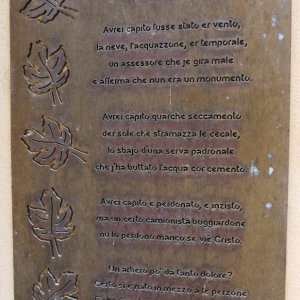 Avrei capito fusse stato er vento,
la neve, l'acquazzone, er temporale,
un assessore che je gira male
e afferma che nun era un monumento.
Avrei capito quarche seccamento
der sole che stramazza le cecale,
lo sbajo d'una serva padronale
che j'ha buttato l'acqua cor cemento.
Avrei capito e perdonato, e inzisto,
ma un certo camionista buggiardone
nu lo perdono manco se viè Cristo.
Un arbero po' dà tanto dolore?
Certo si è nato in mezzo a le perzone